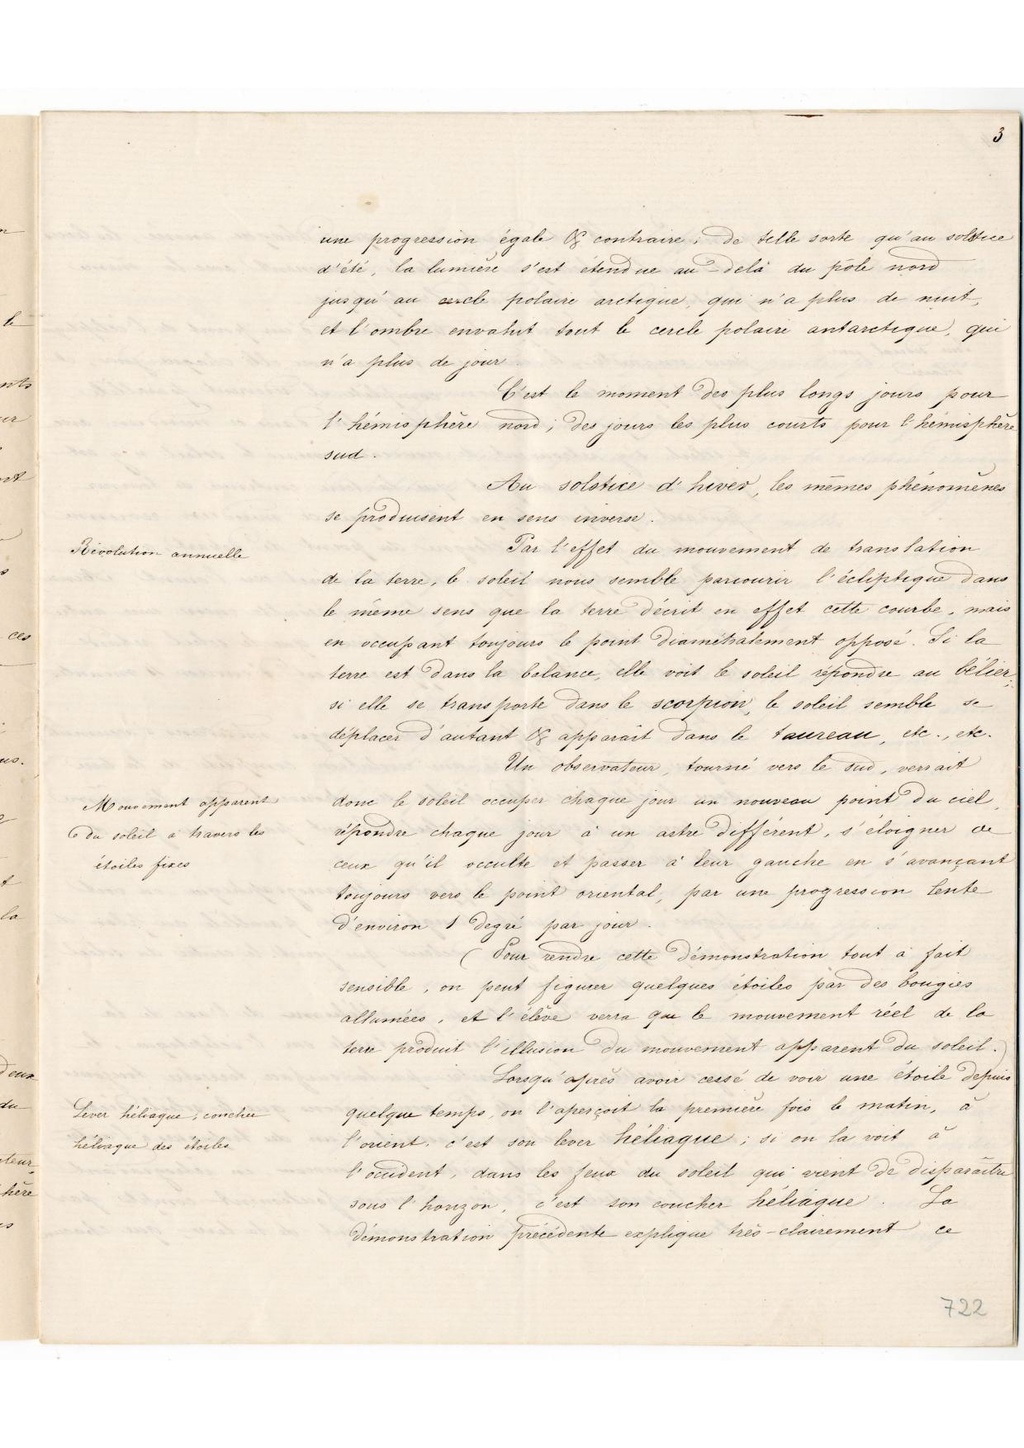 3
une progression égale & contraire ; de telle sorte qu'au solstice
d'été, la lumière s'est étendue au-delà du pôle nord
jusqu'au cercle polaire arctique, qui n'a plus de nuit,
et l'ombre envahit tout le cercle polaire antarctique, qui
n'a plus de jour.
C'est le moment des plus longs jours pour
l'hémisphère nord ; des jours les plus courts pour l'hémisphère
sud.
Au solstice d'hiver, les mêmes phénomènes
se produisent en sens inverse.
Révolution annuelle
Par l'effet du mouvement de translation
de la terre, le soleil nous semble parcourir l'écliptique dans
le même sens que la terre décrit en effet cette courbe, mais
en occupant toujours le point diamétralement opposé. Si la
terre est dans la balance, elle voit le soleil répondre au bélier ;
si elle se transporte dans le scorpion, le soleil semble se
déplacer d'autant & apparaît dans le taureau, etc., etc.
Mouvement apparent
du soleil à travers les
étoiles fixes
Un observateur, tourné vers le sud, verrait
donc le soleil occuper chaque jour un nouveau point du ciel,
répondre chaque jour à un astre différent, s'éloigner de
ceux qu'il occulte et passer à leur gauche en s'avançant
toujours vers le point oriental, par une progression lente
d'environ 1 degré par jour.
(Pour rendre cette démonstration tout à fait
sensible, on peut figurer quelques étoiles par des bougies
allumées, et l'élève verra que le mouvement réel de la
terre produit l'illusion du mouvement apparent du soleil.)
Lever héliaque, coucher
héliaque des étoiles
Lorsqu'après avoir cessé de voir une étoile depuis
quelque temps, on l'aperçoit la première fois le matin, à
l'orient, c'est son lever héliaque ; si on la voit à
l'occident, dans les feux du soleil qui vient de disparaître
sous l'horizon, c'est son coucher héliaque. La
démonstration précédente explique très-clairement ce
722